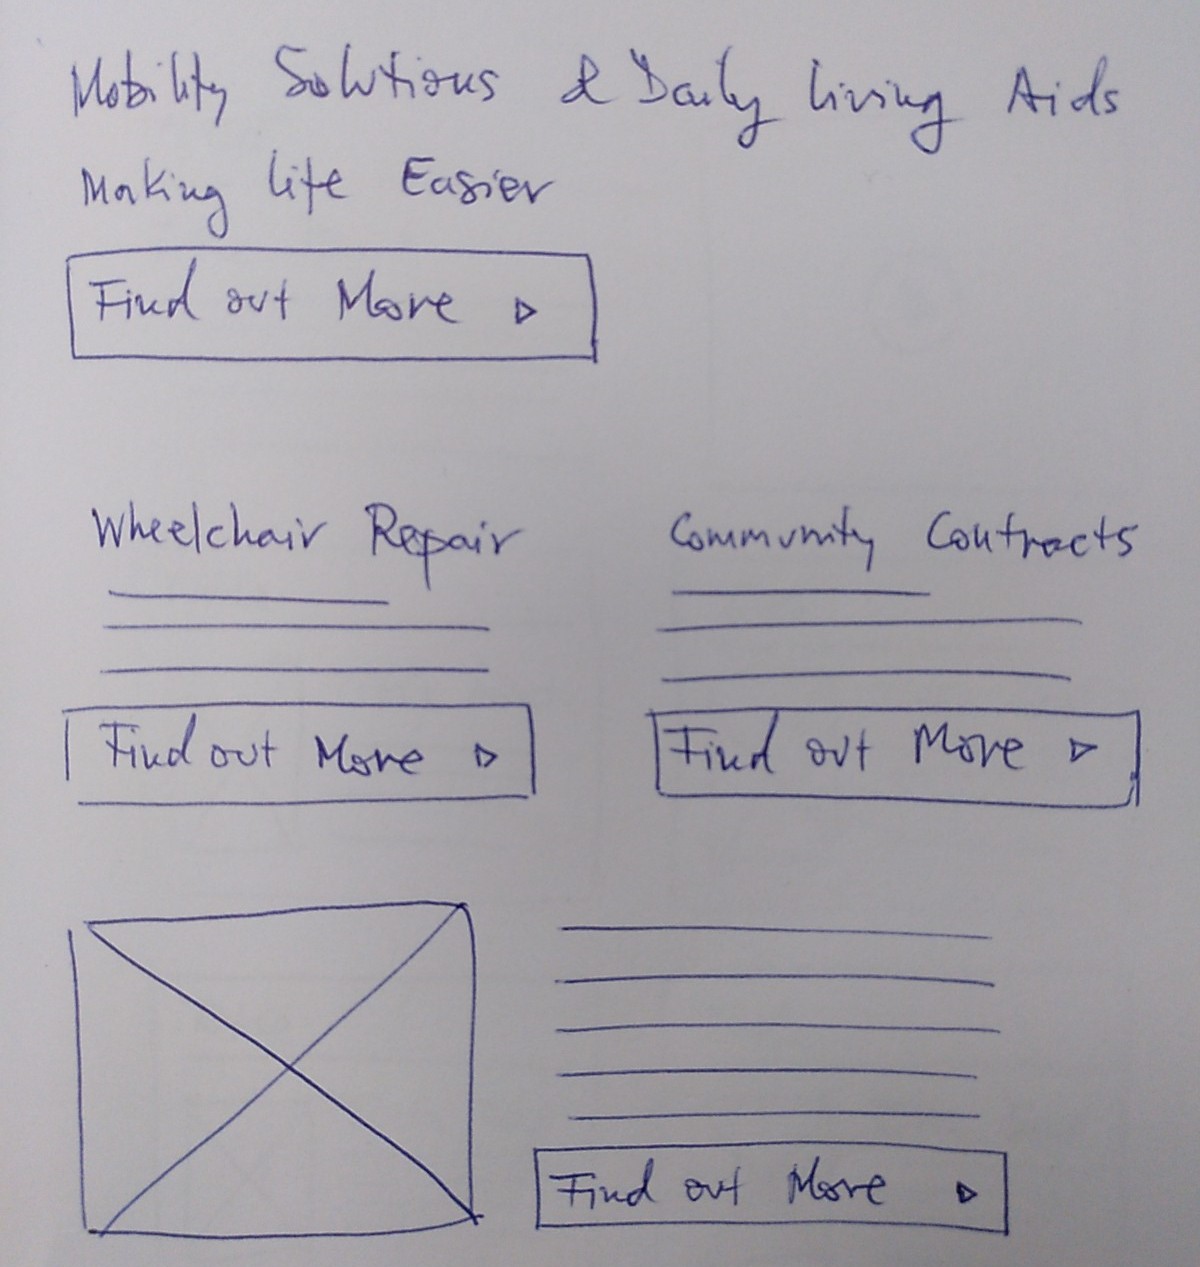 Mobility Solutions & Daily Living Aids
Making Life Easier
Find out More ▷
Wheelchair Repair
Community Contracts
Find out More ▷
Find out More ▷
Find out More ▷